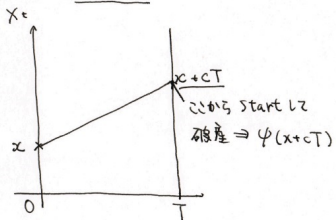 X t
x + cT
ここから start して
破産 ⇒ ψ(x+cT)
x
0
T